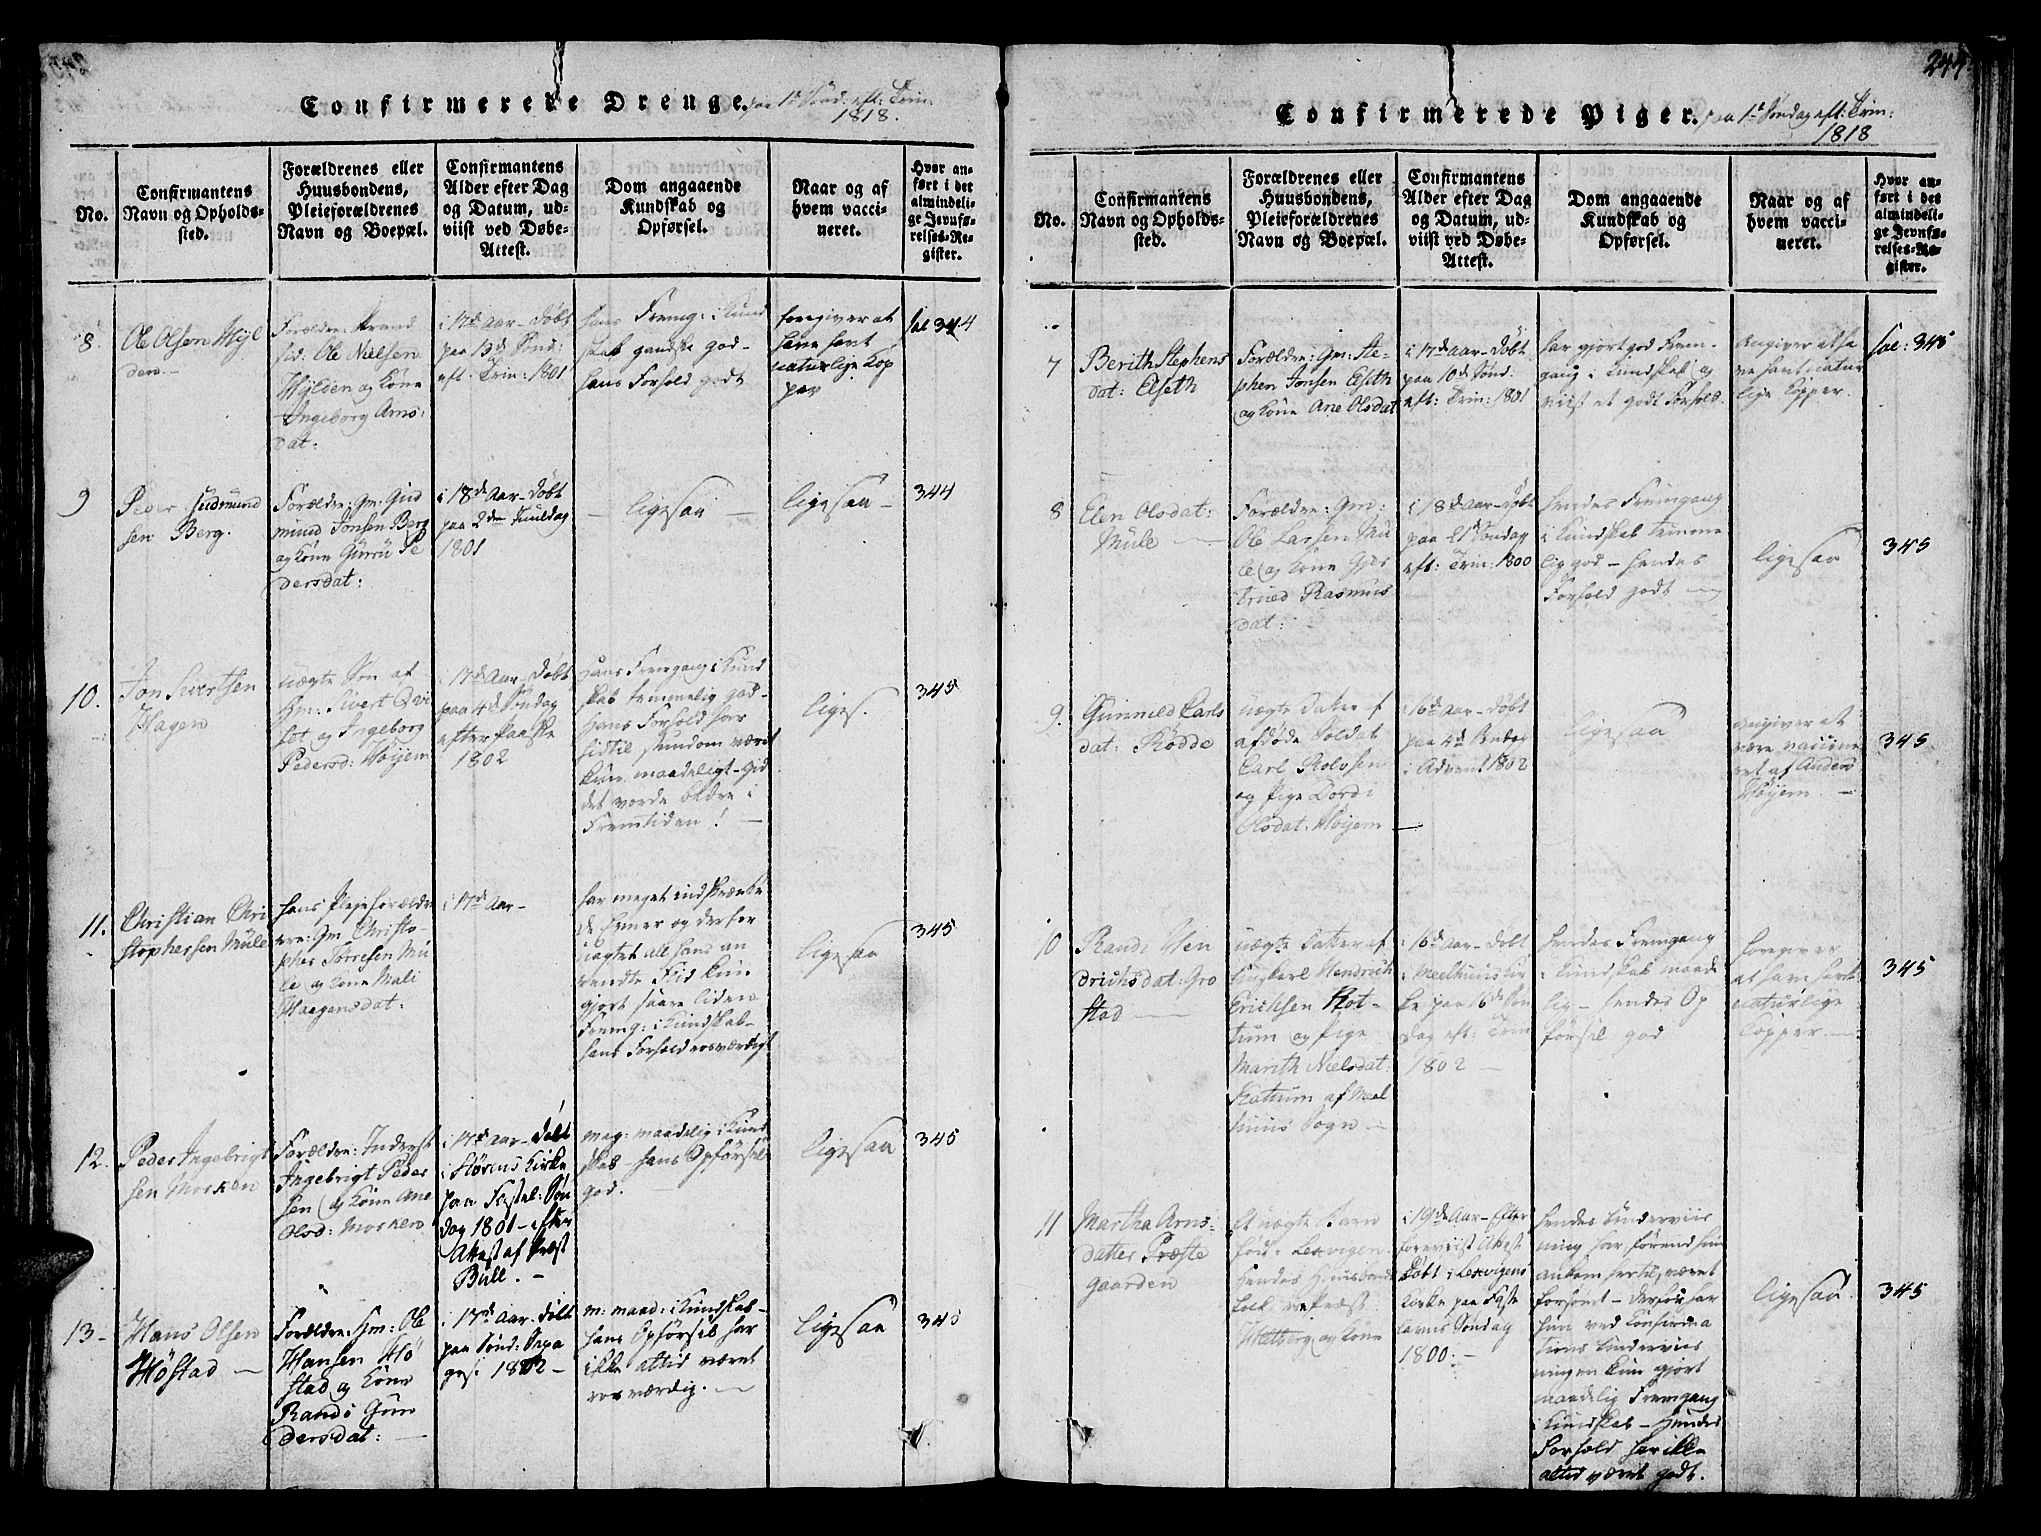 244
Confirmerede Drenge. paa 1ste Sönd: eft: Trin:
1818.
No.
Confirmantens
Navn og Opholds-
sted.
Forældrenes eller
Huusbondens,
Pleieforældrenes
Navn og Boepæl.
Confirmantens
Alder efter Dag
og Datum, ud-
viist ved Døbe-
Attest.
Dom angaaende
Kundskab og
Opførsel.
Naar og af
hvem vacci-
neret.
Hvor an-
ført i det
almindeli-
ge Jevnfø-
relses-Re-
gister.
8.
Ole Olsen Hyl
den.
Forældre: Strand
sid: Ole Nielsen
Hylden og Kone
Ingeborg Arns:
dat:
i 17de Aar - Döbt
paa 13de Sönd:
eft. Trin: 1801
Hans Fremg: i Kund
skab gandske god -
hans Forhold godt
foregiver at
have havt
naturlige Kop
per
fol 344
9
Peder Gudmund
sen Berg.
Forældre: Gm. Gud
mund Jonsen Berg
og Kone Gurru Pe
dersdat:
i 18de Aar - Döbt
paa 2den Juuldag
1801
- ligesaa -
ligesaa -
344
10.
Jon Sivertsen
Hagen
uægte Søn af
Gm: Sivert Qvi
og Ingeborg
Pedersd: Höyem
i 17de Aar - Döbt
paa 4de Söndag
efter Paaske
1802
Hans Fremgang i Kund
skab temmelig god -
Hans Forhold har
hidtil stundom været
kun maadeligt - Gid
det vorde bedre i
Fremtiden! -
liges.
345
11.
Christian Chri
stophersen Mule
Hans Plejeforældre
ere: Gm Christo
pher Torresen Mu
le og Kone Mali
Haagensdat:
i 17de Aar -
har meget indskrænke
de Evner og derfor
uagtet all hans an
vendte Flid kun
gjort saare liden
Fremg: i Kundskab -
hans Forhold rosværdigt
ligesaa
345
12.
Peder Ingebrigt
sen Morken
Forældre: Inderst
Ingebrigt Peder
sen og Kone Ane
Olsd: Morken
i 17de Aar - Döbt
i Störens Kirke
paa Fastel: Sön
dag 1801 - efter
Attest af Præst
Bull. -
meg: maadelig i Kund
skab - hans Opförsel
god. -
ligesaa
345
13 -
Hans Olsen
Höstad -
Forældre: Gm: Ole
Hansen Hö
stad og Kone
Randi Gun
dersdat: -
i 17de Aar - Döbt
paa Sönd: Sexa
ges: 1802 -
m: maad: i Kundskab -
hans Opförsel har
ikke altid været
rosværdig. -
ligesaa
345
Confirmerede Piger. paa 1ste Söndag eft: Trin:
1818
No.
Confirmantens
Navn og Opholds-
sted.
Forældrenes eller
Huusbondens,
Pleieforældrenes
Navn og Boepæl.
Confirmantens
Alder efter Dag
og Datum, ud-
viist ved Døbe-
Attest.
Dom angaaende
Kundskab og
Opførsel.
Naar og af
hvem vacci-
neret.
Hvor an-
ført i det
almindeli-
ge Jevnfø-
relses-Re-
gister.
7
Berith Stephens
dat: Elseth
Forældre: Gm: Ste-
phen Jonsen Elseth
og Kone Ane Olsdat
i 17de Aar - Döbt
paa 10de Sönd:
eft: Trin: 1801
har gjort god Frem-
gang i Kundskab og
viist et godt Forhold.
Angiver at ha
ve havt natur
lige Kopper.
fol: 345
8
Elen Olsdat:
Mule -
Forældre: Gm:
Ole Larsen Mu
le og Kone Gjer
trued Rasmus
dat:
i 18de Aar - Döbt
paa 21de Söndag
eft: Trin: 1800
Hendes Fremgang
i Kundskab temme
lig god - hendes
Forhold godt -
ligesaa
345
9.
Gunneld Carls
dat: Rödde
uægte Datter af
afdöde Soldat
Carl Rolvsen
og Pige Dordi
Olsdat: Höyem -
i 16de Aar - Döbt
paa 4de Söndag
i Advent 1802
ligesaa
Angiver at
være vaccine
ret af Anders
Höyem. -
345
10
Randi Hen
drichsdat: Gro
stad -
uægte Datter af
Ungkarl Hendrich
Erichsen Rot-
tum og Pige
Marith Nielsdat:
Rattum af Meel
huus Sogn -
i 16de Aar - Döbt
i Meelhuus Kir
ke paa 16de Sön
dag eft: Trin
1802 -
Hendes Fremgang
i Kundskab maade
lig - hendes Op
försel god
foregiver
at have havt
naturlige
Copper. -
345
11
Martha Arns:
datter Præste
gaarden
Et uægte Barn
föd i Lexvigen
Hendes Huusbonde
folk ere Præst
og Kone
i 19de Aar - Efter
foreviist Attest
Döbt i Lexvigens
Kirke paa Faste
lavns Söndag
1800. -
Hendes Underviis
ning har förend hun
ankom hertil, været
forsömt - derfor har
hun ved Confirma
tions Underviis
ningen kun gjort
maadelig Fremgang
i Kundskab - Hendes
Forhold har ikke
altid været godt.
ligesaa.
345